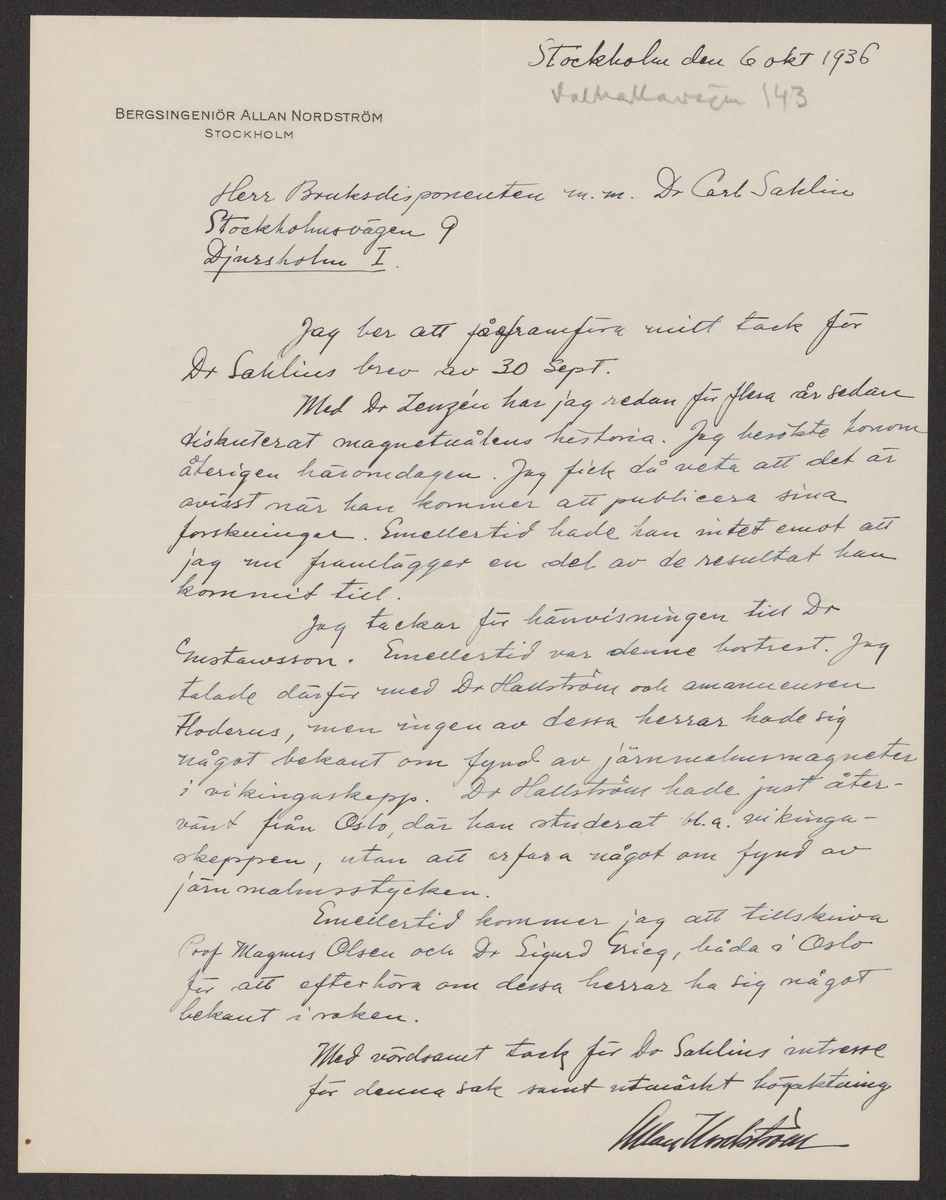 Stockholm den 6 okt 1936
Valhallavägen 143
BERGSINGENIÖR ALLAN NORDSTRÖM
STOCKHOLM
Herr Bruksdisponenten m.m. Dr Carl Sahlin
Stockholmsvägen 9
Djursholm I.
Jag ber att få framföra mitt tack för
Dr Sahlins brev av 30 Sept.
Med Dr Zenzén har jag redan för flera år sedan
diskuterat magnetnålens historia. Jag besökte honom
återigen häromdagen. Jag fick då veta att det är
ovisst när han kommer att publicera sina
forskningar. Emellertid hade han intet emot att
jag nu framlägger en del av de resultat han
kommit till.
Jag tackar för hänvisningen till Dr
Gustawsson. Emellertid var denne bortrest. Jag
talade därför med Dr Hallström och amanuensen
Floderus, men ingen av dessa herrar hade sig
något bekant om fynd av järnmalmsmagneter
i vikingaskepp. Dr Hallström hade just åter-
vänt från Oslo, där han studerat bl.a. vikinga-
skeppen, utan att erfara något om fynd av
järnmalmsstycken.
Emellertid kommer jag att tillskriva
Prof Magnus Olsen och Dr Sigurd Grieg, båda i Oslo
för att efterhöra om dessa herrar ha sig något
bekant i saken.
Med vördsamt tack för Dr Sahlins intresse
för denna sak samt utmärkt högaktning
Allan Nordström